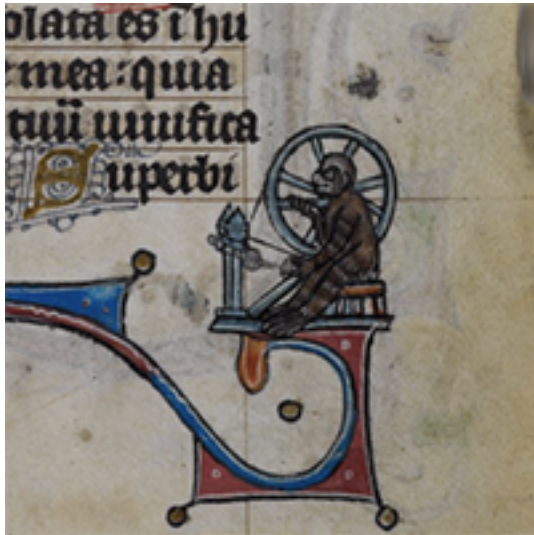 olata es i hu
e mea : quia
tuū uiuifica
Superbi